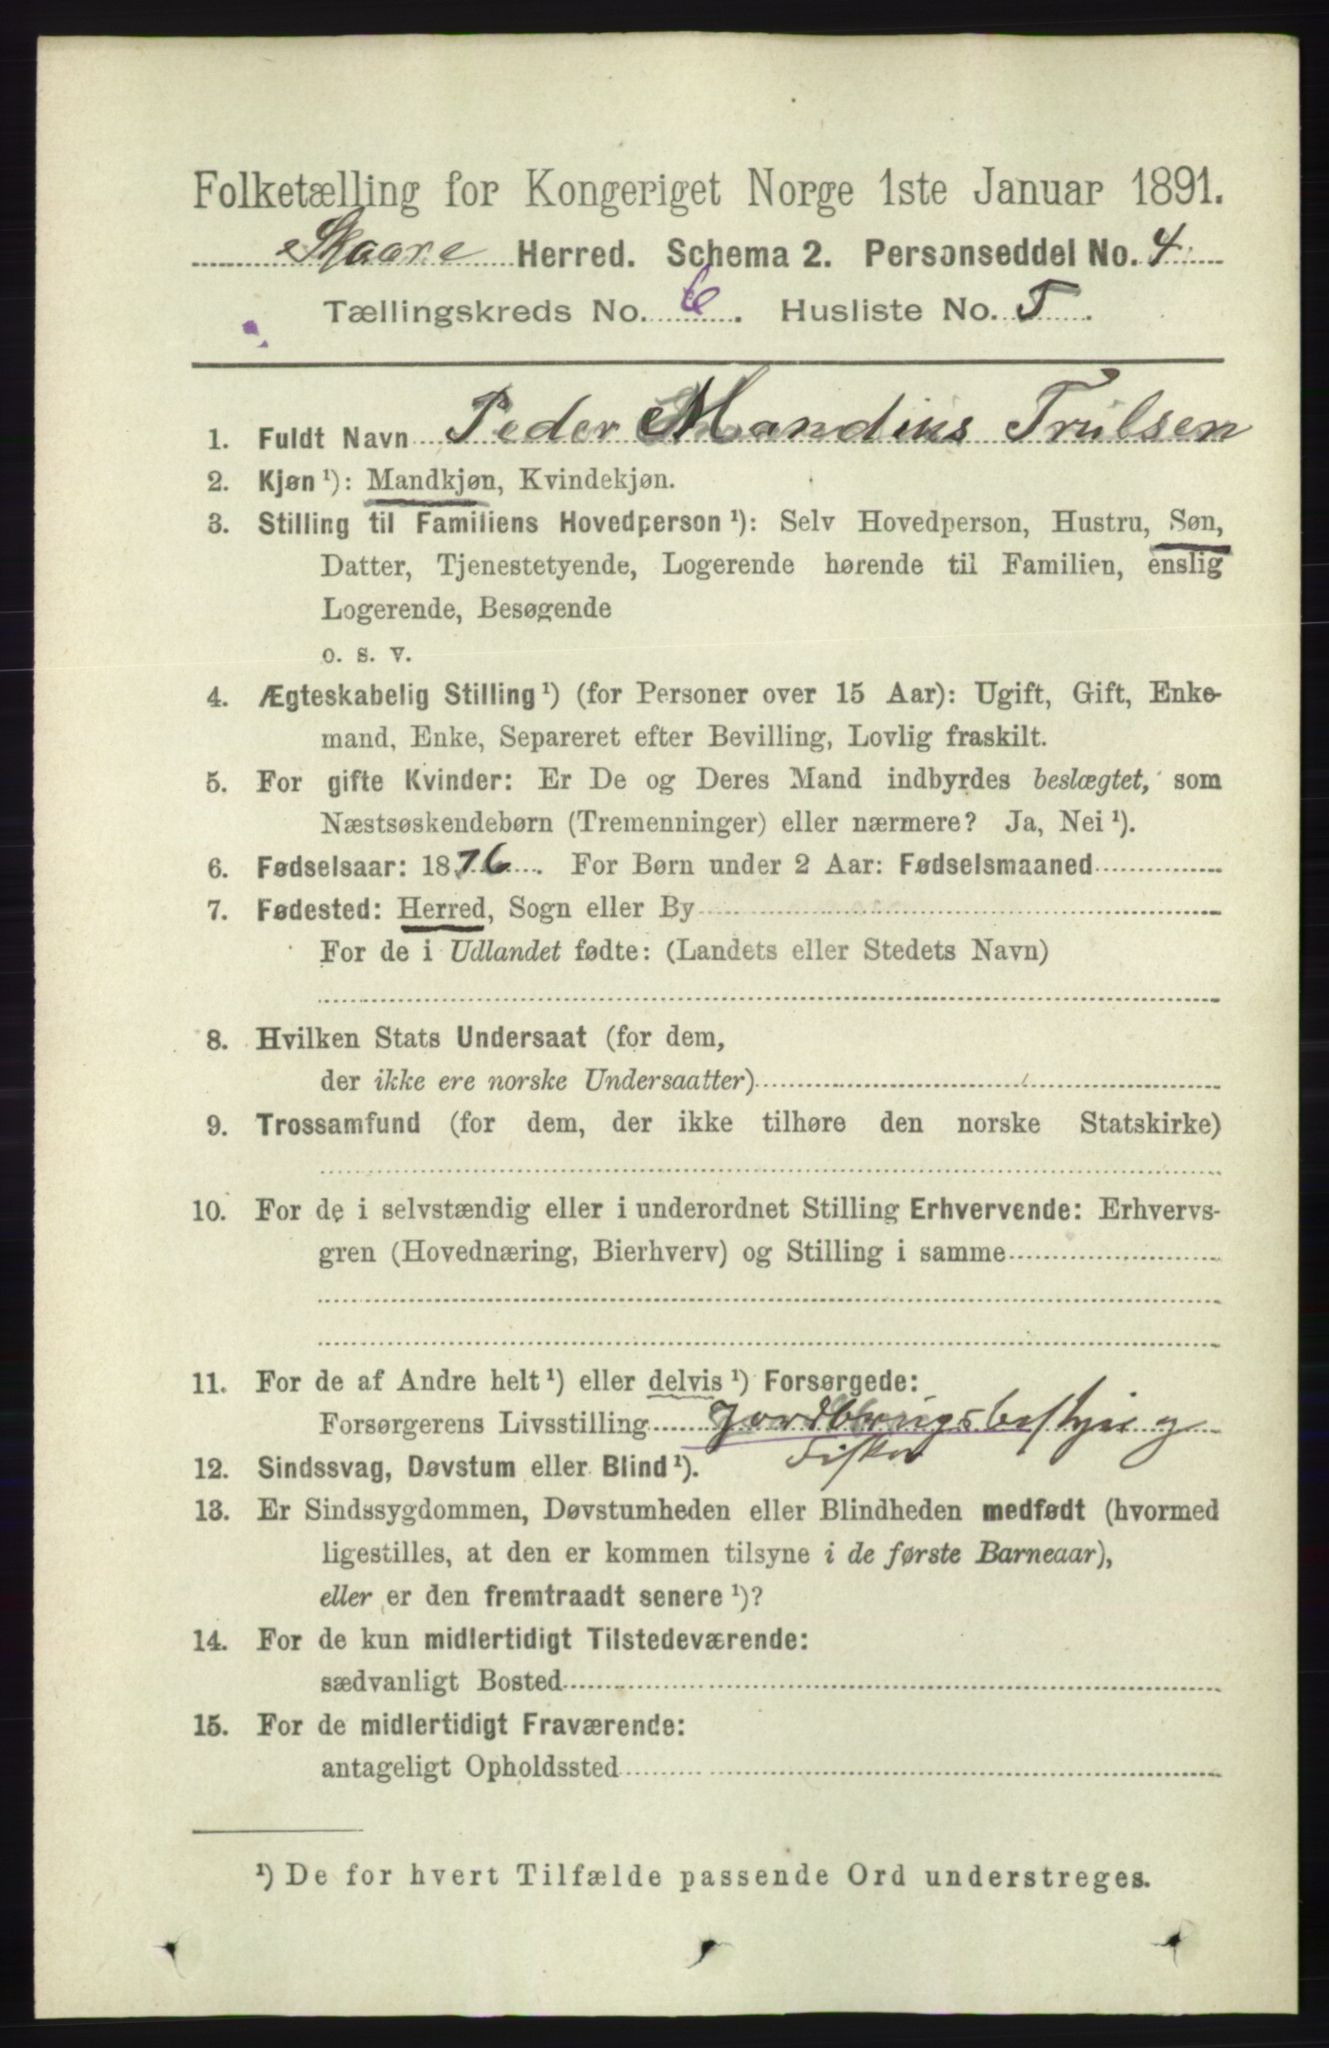 Folketælling for Kongeriget Norge 1ste Januar 1891.
Skaare Herred. Schema 2. Personseddel No. 4
Tællingskreds No. 6. Husliste No. 5.
1. Fuldt Navn Peder Mandius Trulsen
2. Kjøn ¹): Mandkjøn, Kvindekjøn.
3. Stilling til Familiens Hovedperson ¹): Selv Hovedperson, Hustru, Søn,
Datter, Tjenestetyende, Logerende hørende til Familien, enslig
Logerende, Besøgende
o. s. v.
4. Ægteskabelig Stilling ¹) (for Personer over 15 Aar): Ugift, Gift, Enke-
mand, Enke, Separeret efter Bevilling, Lovlig fraskilt.
5. For gifte Kvinder: Er De og Deres Mand indbyrdes beslægtet, som
Næstsøskendebørn (Tremenninger) eller nærmere? Ja, Nei ¹).
6. Fødselsaar: 1876. For Børn under 2 Aar: Fødselsmaaned
7. Fødested: Herred, Sogn eller By
For de i Udlandet fødte: (Landets eller Stedets Navn)
8. Hvilken Stats Undersaat (for dem,
der ikke ere norske Undersaatter)
9. Trossamfund (for dem, der ikke tilhøre den norske Statskirke)
10. For de i selvstændig eller i underordnet Stilling Erhvervende: Erhvervs-
gren (Hovednæring, Bierhverv) og Stilling i samme
11. For de af Andre helt ¹) eller delvis ¹) Forsørgede:
Forsørgerens Livsstilling Jordbrugsbestyr og
Fisker
12. Sindssvag, Døvstum eller Blind ¹).
13. Er Sindssygdommen, Døvstumheden eller Blindheden medfødt (hvormed
ligestilles, at den er kommen tilsyne i de første Barneaar),
eller er den fremtraadt senere ¹)?
14. For de kun midlertidigt Tilstedeværende:
sædvanligt Bosted
15. For de midlertidigt Fraværende:
antageligt Opholdssted
¹) De for hvert Tilfælde passende Ord understreges.